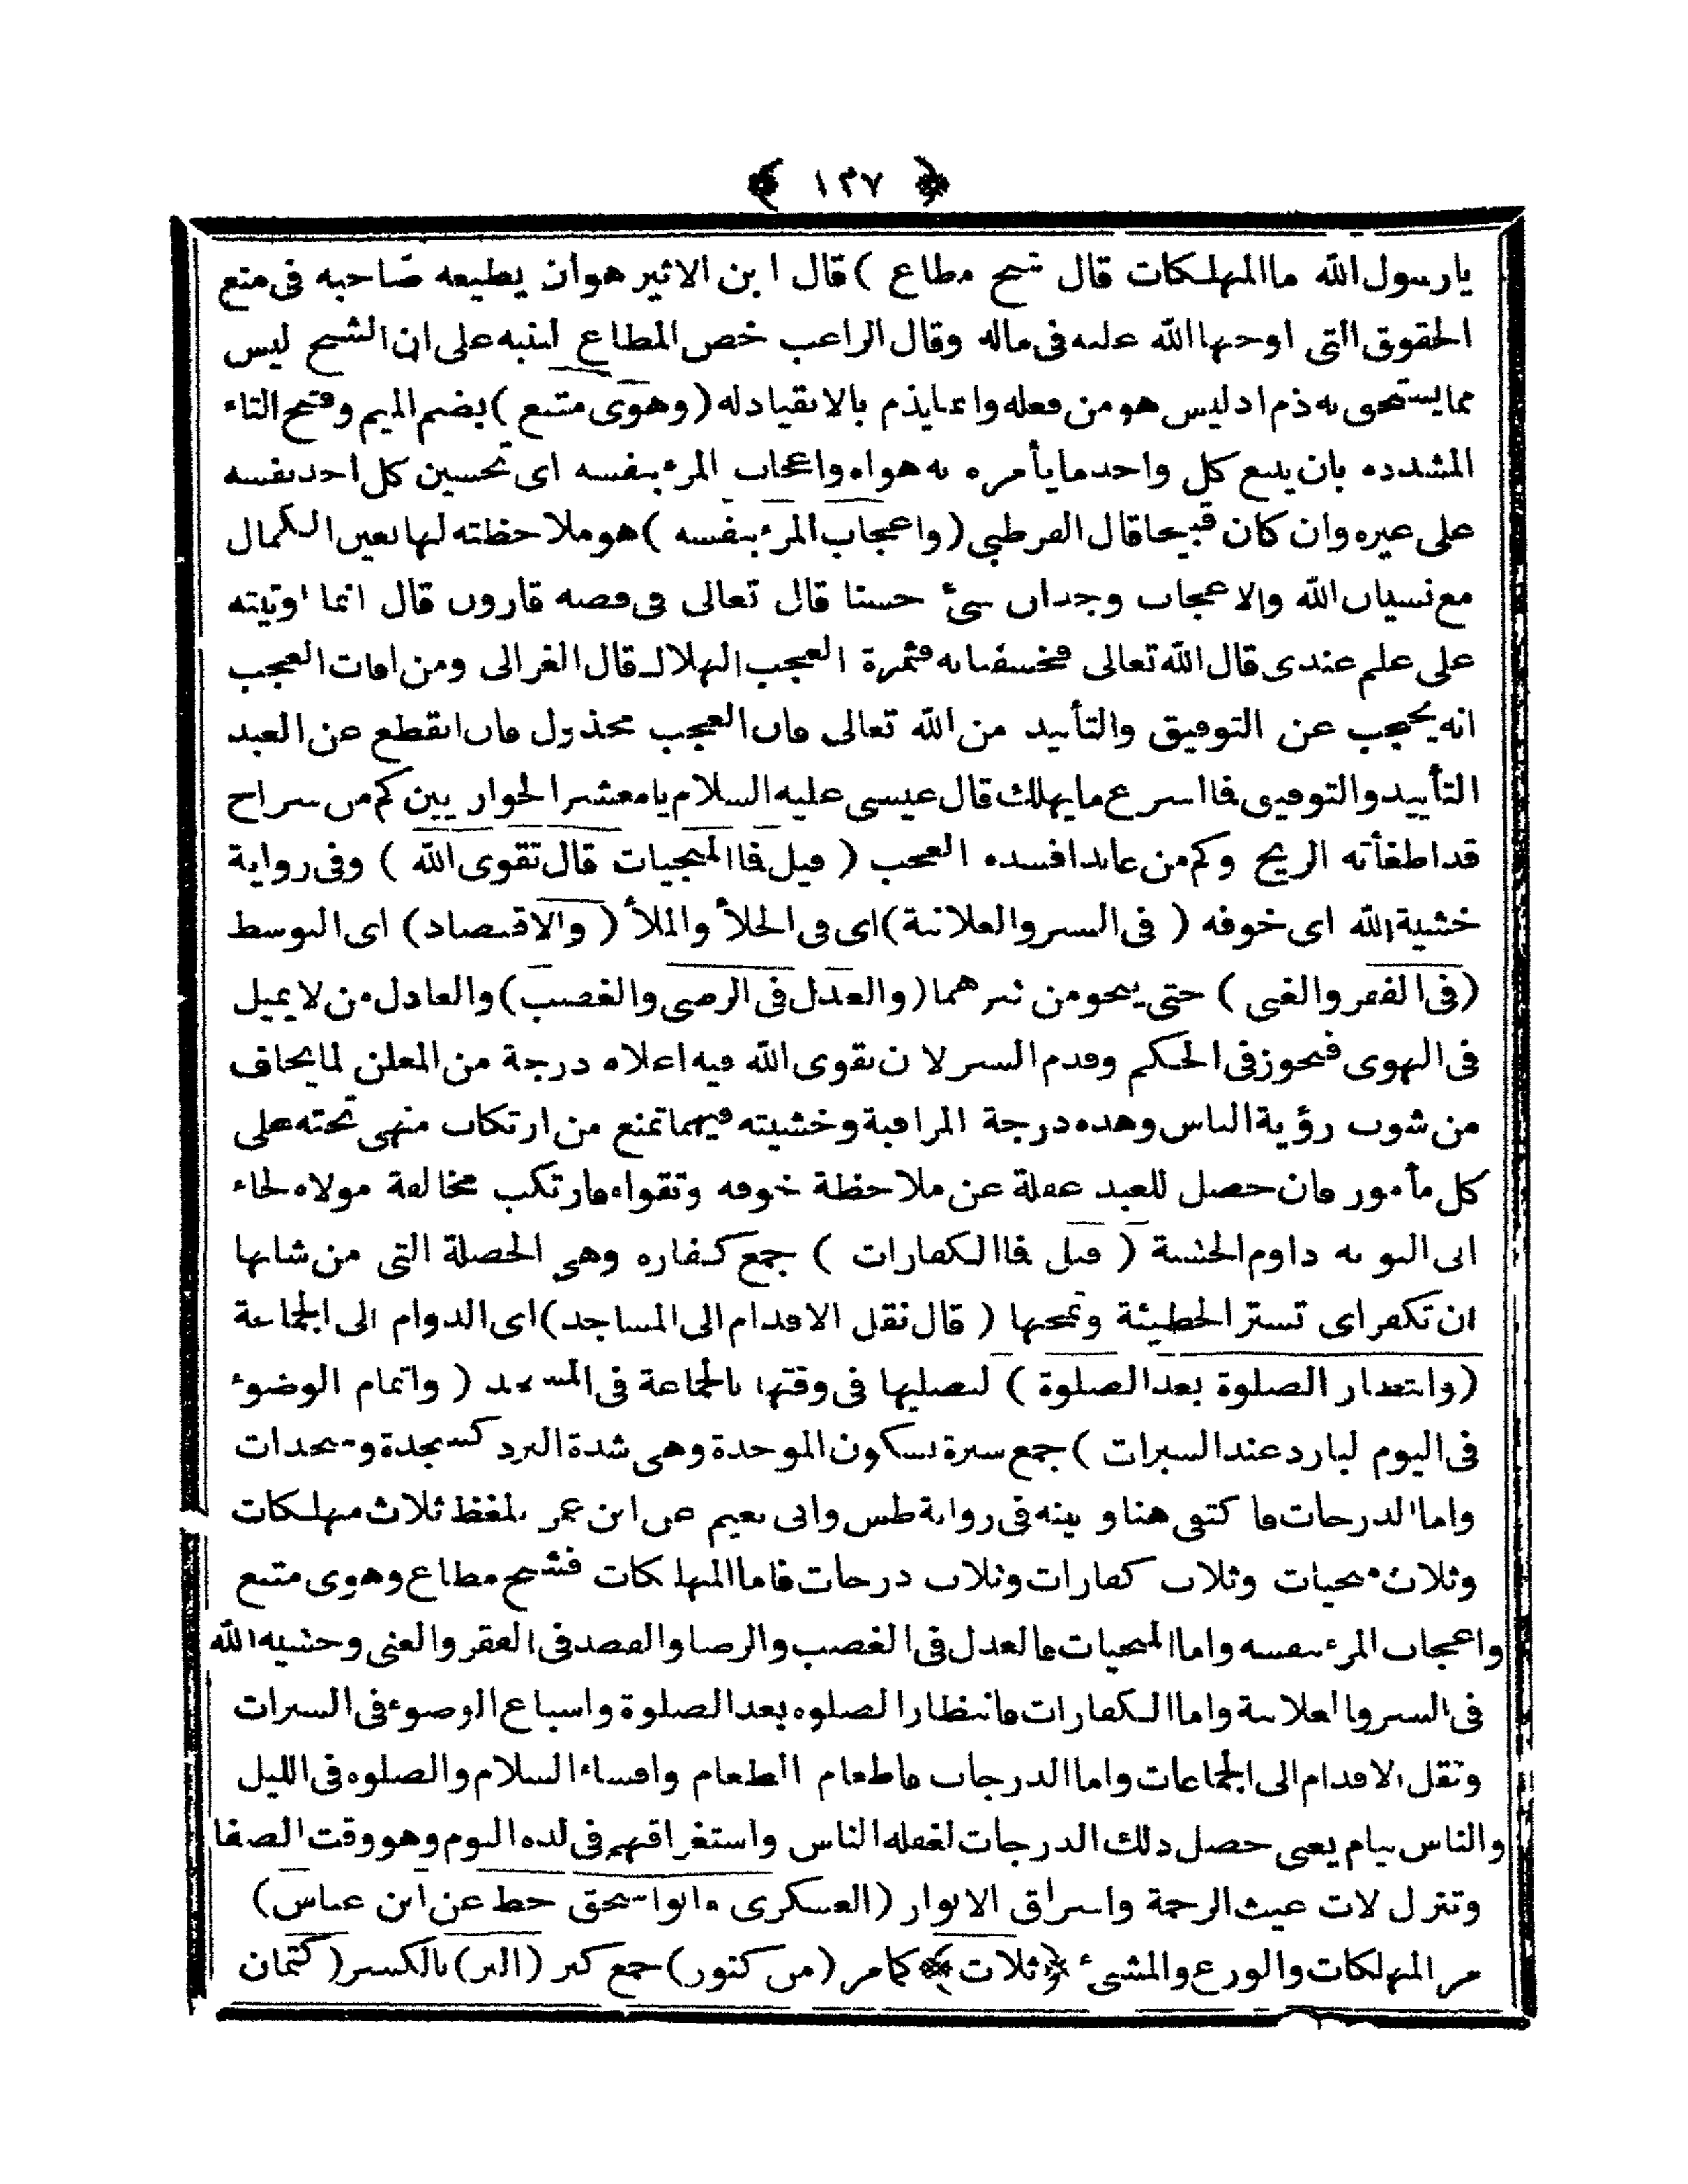 ﴿ ١٣٧ ﴾
يا رسول الله ما المهلكات قال شح مطاع ) قال ابن الاثير هو ان يطيعه صاحبه فى منع
الحقوق التى اوجبها الله عليه فى ماله وقال الراغب خص المطاع لينبه على ان الشح ليس
مما يستحق به ذم اذ ليس هو من فعله وانما يذم بالانقياد له ( وهوى متبع ) بضم الميم وفتح التاء
المشدده بان يتبع كل واحد ما يأمره به هواه واعجاب المرء بنفسه اى تحسين كل احد نفسه
على غيره وان كان قبيحا قال القرطبى ( واعجاب المرء بنفسه ) هو ملاحظته لها بعين الكمال
مع نسيان الله والاعجاب وجدان شئ حسنا قال تعالى فى قصه قارون قال انما اوتيته
على علم عندى قال الله تعالى فخسفنا به فثمرة العجب الهلاك قال الغزالى ومن افات العجب
انه يحجب عن التوفيق والتأييد من الله تعالى فان العجب مخذول فان انقطع عن العبد
التأييد والتوفيق فا اسرع ما يهلك قال عيسى عليه السلام يا معشر الحواريين كم من سراح
قد اطفأته الريح وكم من عابد افسده العجب ( قيل فا المنجيات قال تقوى الله ) وفى رواية
خشية الله اى خوفه ( فى السر والعلانية ) اى فى الخلأ والملأ ( والاقتصاد ) اى التوسط
( فى الفقر والغنى ) حتى ينجو من شرهما ( والعدل فى الرضى والغضب ) والعادل من لا يميل
فى الهوى فيجوز فى الحكم وقدم السر لان تقوى الله فيه اعلاه درجة من المعلن لما يخاف
من شوب رؤية الناس وهذه درجة المراقبة وخشيته فيهما تمنع من ارتكاب منهى تحته على
كل مأمور فان حصل للعبد غفلة عن ملاحظة خوفه وتقواه فارتكب مخالفة مولاه لجاء
الى التوبه داوم الخشية ( قيل فا الكفارات ) جمع كفاره وهى الخصلة التى من شانها
ان تكفر اى تستر الخطيئة وتمحها ( قال نقل الاقدام الى المساجد ) اى الدوام الى الجماعة
( وانتظار الصلوة بعد الصلوة ) ليصليها فى وقتها بالجماعة فى المسجد ( واتمام الوضوء
فى اليوم لبارد عند السبرات ) جمع سبرة بسكون الموحدة وهى شدة البرد كسجدة وسجدات
واما الدرجات فا كتفى هنا و بينه فى رواية طس وابى نعيم عن ابن عمر بلفظ ثلاث مهلكات
وثلاث منجيات وثلاث كفارات وثلاث درجات فاما المهلكات فشح مطاع وهوى متبع
واعجاب المرء بنفسه واما المنجيات فالعدل فى الغضب والرضا والقصد فى الفقر والغنى وخشيه الله
فى السر والعلانية واما الكفارات فانتظار الصلوه بعد الصلوة واسباغ الوضوء فى السبرات
ونقل الاقدام الى الجماعات واما الدرجات فاطعام الطعام وافشاء السلام والصلوه فى الليل
والناس نيام يعنى حصل ذلك الدرجات لغفله الناس واستغراقهم فى لذه النوم وهو وقت الصفا
وتنزلات غيث الرحمة واشراق الانوار ( العسكرى وابو اسحق خط عن ابن عباس )
مر المهلكات والورع والمشئ ﴿ ثلاث ﴾ كما مر ( من كنوز ) جمع كنز ( البر ) بالكسر ( كتمان